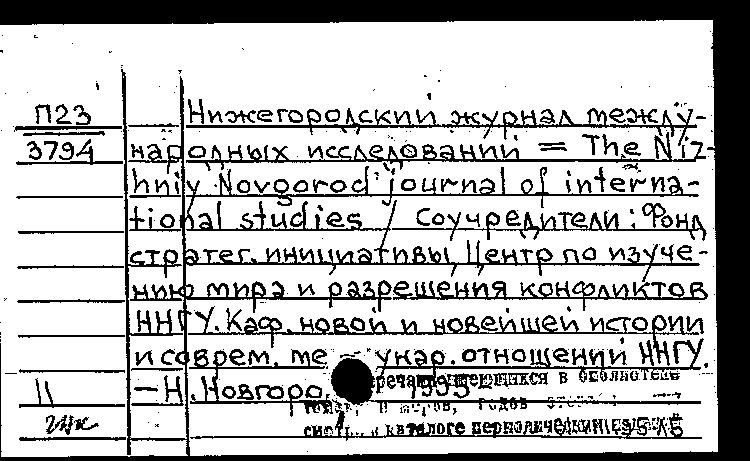 П23
3794
Нижегородский журнал между-
народных исследований = The Niz-
hniy Novgorod journal of interna-
tional studies / Соучредители: Фонд
стратег. инициативы, Центр по изуче-
нию мира и разрешения конфликтов
ННГУ. Каф. новой и новейшей истории
и соврем. отношений ННГУ.
II — Н. Новгоро
в библиотеке
годов
каталоге периодических